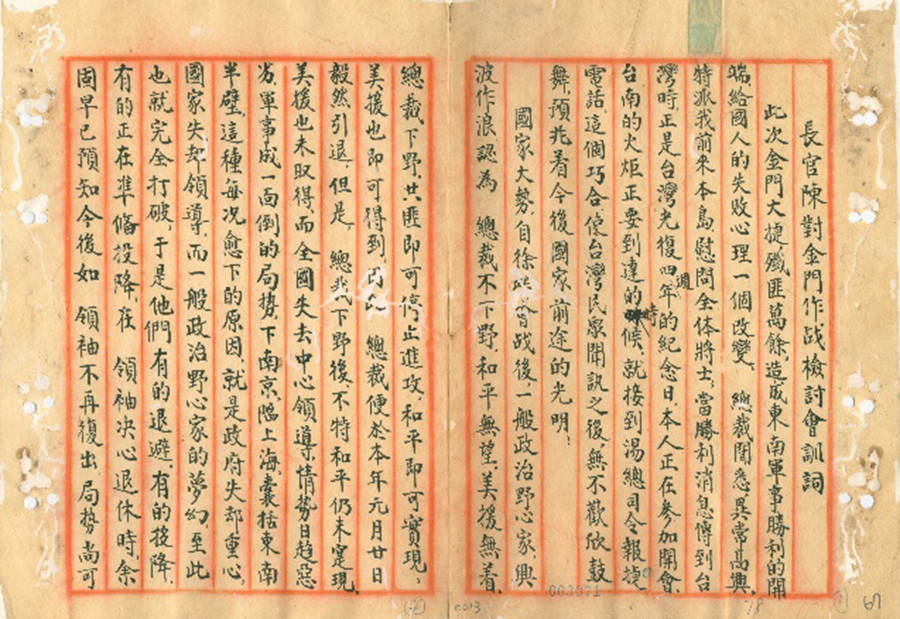 長官陳對金門作战檢討會訓詞
此次金門大捷,殲匪萬餘,造成東南軍事勝利的開
端,給國人的失敗心理一個改變。 總裁聞悉異常高興,
特派我前來本島慰問全体將士,當勝利消息傳到台
灣時,正是台灣光復四週年的紀念日,本人正在參加開會,
台南的火炬正要到達的時候,就接到湯總司令報捷
電話,這個巧合使台灣民眾聞訊之後,無不歡欣鼓
舞,預兆着今後國家前途的光明。
國家大勢,自徐蚌會战後,一般政治野心家,興
波作浪,認為 總裁不下野,和平無望,美援無着,
總裁下野,共匪即可停止進攻,和平即可實現,
美援也即可得到, 總裁便於本年元月廿日
毅然引退,但是, 總裁下野後,不特和平仍未實現,
美援也未取得,而全國失去中心領導,情勢日趨惡
劣,軍事成一面倒的局势,下南京,陷上海,囊括東南
半壁,這種每况愈下的原因,就是政府失却重心,
國家失却領導,而一般政治野心家的夢幻至此
也就完全打破,于是他們有的退避,有的投降,
有的正在準備投降,在 領袖决心退休時,余
固早已預知今後如 領袖不再復出,局勢尚可
003571
0013
78
67